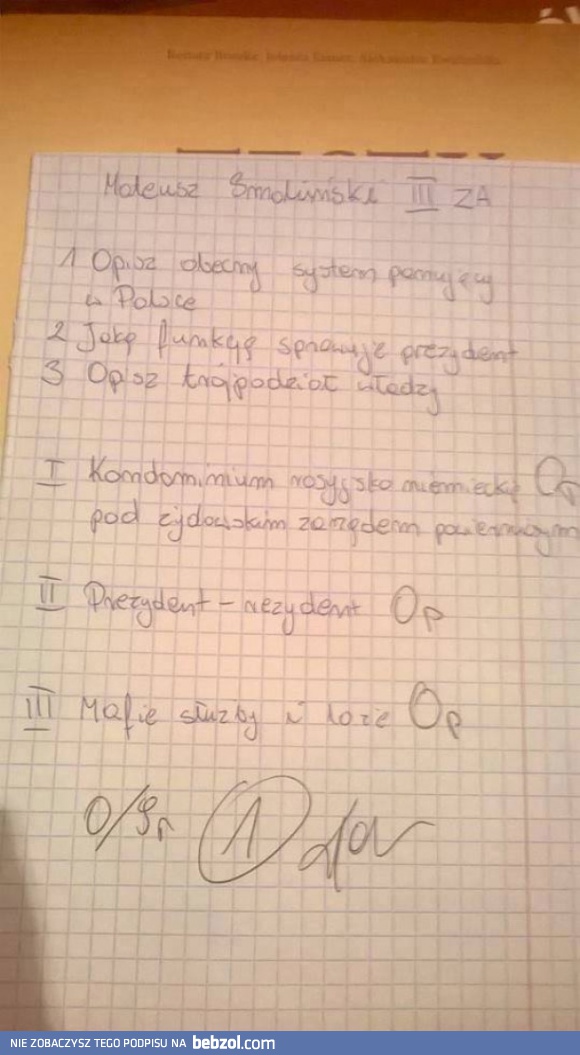 Mateusz Smoliński III ZA
1 Opisz obecny system panujący
w Polsce
2 Jaką funkcję sprawuje prezydent
3 Opisz trójpodział władzy
I Kondominium rosyjsko niemieckie 0p
pod żydowskim zarządem powierniczym
II Prezydent - rezydent 0p
III Mafie służby i loże 0p
0/9p 1
NIE ZOBACZYSZ TEGO PODPISU NA bebzol.com